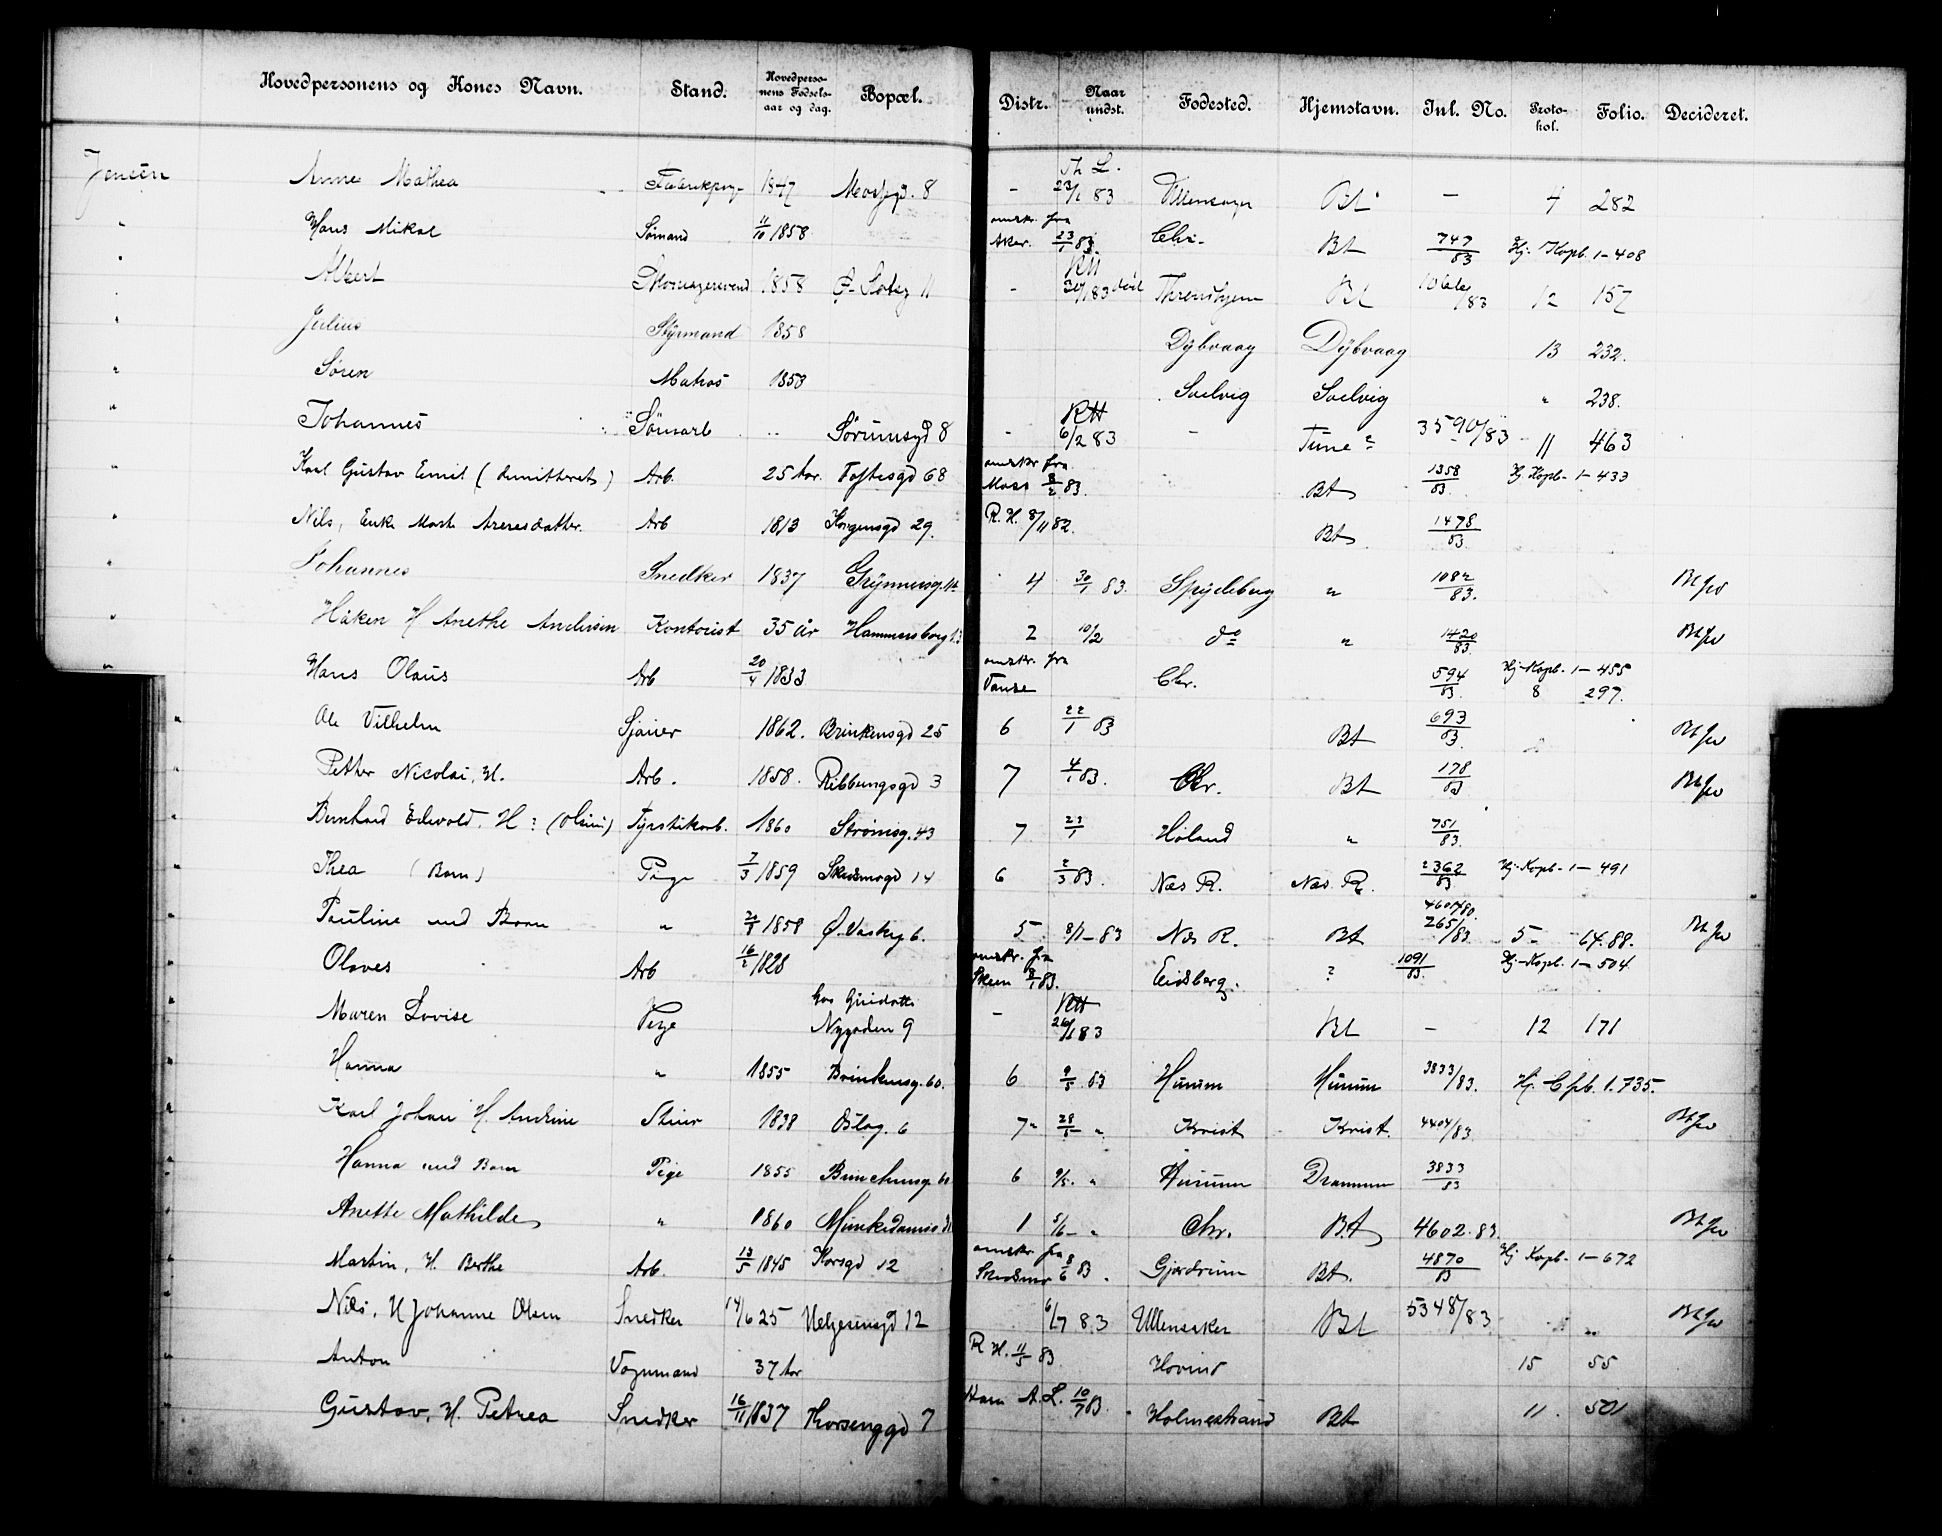 Hovedpersonens og Kones Navn. Stand. Hovedpersonens Fødselsaar og dag. Bopæl. Distr. Naar undst. Fødested. Hjemstavn. Inl. No. Protokol. Folio. Decideret.
Jensen Anne Mathea 1847 8 - Th L. 23/1 83 Bt - 4 282
" Hans Mikal Sömand 11/10 1858 omskr. fra Aker. 23/1 83. Chr. Bt 747/83 Hj. Kopb. 1-408
" Albert Skomagersvend 1858 11 - RH 83 död Throndhjem Bt 12 157
" Julius Styrmand 1858 Dybvaag Dybvaag 13 232.
" Søren Matros 1853 Soelvig Soelvig " 238.
" Johannes Sörumsgd 8 - RH 6/2 83 - Tune? 3590/83 11 463
" Karl Gustav Emil ( ) Arb. 25 Aar. Toftesgd 68 omskr fra Moss 8/2 83. Bt 1358/83. Hj. Kopb. 1-433
" Nils, Enke Arb 1813 Korgensgd 29. R. H. 8/11 82. Bt 1478/83.
" Johannes Snedker 1837 4 30/1 83. Spydeberg " 1082/83.
" Håken H Anethe Andersen Kontorist 35 år Hammersborg 2 10/2 do " 1420/83.
" Hans Olaus Arb 20/4 1833 omskr. fra Vanse Chr. 594/83. Hj. Kopb. 1-455
8 297.
" Ole Vilhelm Sjauer 1862. Brinkensgd 25 6 22/1 83 Bt 693/83.
Petter Nicolai, H. Arb. 1858. Ribbungsgd 3 7 4/1 83. Chr. Bt 178/83
" Bernhard Edvold, H? (Olsen) Fyrstikarb. 1860 Strömsg. 43 7 23/1 Höland " 751/83.
" Thea (Barn) Pige 7/3 1859 Skedsmogd 14 6 2/3 83. Næs R. Næs R. 2362/83 Hj. Kopb. 1-491
" Pauline med Barn " 1858 Ø. Vaskeg 6. 5 8/1-83 Næs R. Bt 4601/80. 265/83 5 64.88.
" Olaves Arb 16/2 1828 omskr. fra Skien 8/1 83. Eidsberg. ? 1091/83. Hj. Kopb. 1-504
" Maren Lovise Pige hos Nygaden 9 - RH 26/1 83 Bt - 12 171
" Hanna " 1855 Brinkensg. 60. 6 9/5 83 Hurum Hurum 3833/83. Hj. Cpb. 1.735.
" Karl Johan H. Andrine 1838 Oslog. 6 7" 28/5 " Krist Krist. 4404/83.
" Hanna med Barn Pige 1855 6 9/5. " Hurum Drammen 3833/83
" Anette Mathilde " 1860 1 5/6- " Chr. Bt 4602.83.
" Martin, H. Berthe Arb. 13/5 1845 Korsgd 12 omskr fra Skedsmo 8/6 83. Gjerdrum Bt. 4870/83 Hj. Kopb. 1-672
" Nils, H Johanne Olsen Snedker 14/6 25 Helgesensgd 12 6/7 83 Ullensaker Bt 5348/83 "
" Anton Vognmand 37 Aar R. H. 11/5 83 Hovind 15 55
" Gustav, H. Petrea Snedker 16/11 1837 Thorsenggd 7 A. L. 10/7 83. Holmestrand Bt 11. 501